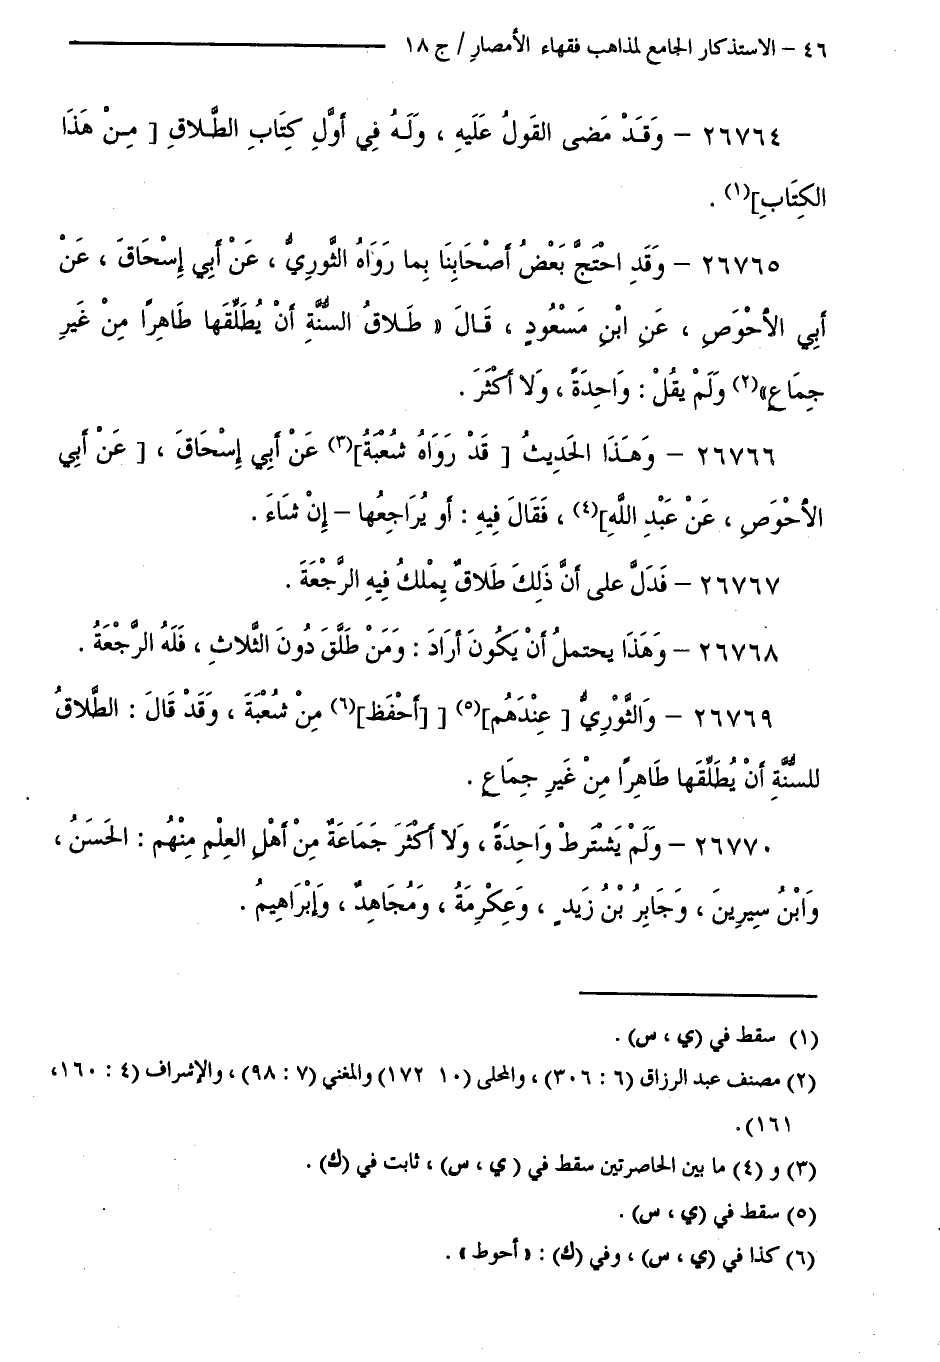 ٤٦ – الاستذكار الجامع لمذاهب فقهاء الأمصار / ج ١٨
٢٦٧٦٤ – وَقَدْ مَضى القَولُ عَلَيهِ ، وَلَهُ فِي أوَّلِ كِتَابِ الطَّلاقِ [ مِنْ هَذَا
الكِتَابِ](١) .
٢٦٧٦٥ – وَقَدِ احْتَجَّ بَعْضُ أصْحَابِنَا بِما رَوَاهُ الثَّورِيُّ ، عَنْ أبِي إِسْحَاقَ ، عَنْ
أبِي الأحْوَصِ ، عَنِ ابْنِ مَسْعُودٍ ، قَالَ « طَلاقُ السُّنَّةِ أنْ يُطَلِّقَها طَاهِرًا مِنْ غَيرِ
جِمَاعٍ»(٢) وَلَمْ يقُلْ : وَاحِدَةً ، وَلا أكْثَرَ .
٢٦٧٦٦ – وَهَذَا الحَدِيثُ [ قَدْ رَوَاهُ شُعْبَةُ](٣) عَنْ أبِي إِسْحَاقَ ، [ عَنْ أبِي
الأحْوَصِ ، عَنْ عَبْدِ اللَّهِ](٤) ، فَقَالَ فِيهِ : أو يُرَاجِعُها – إِنْ شَاءَ .
٢٦٧٦٧ – فَدَلَّ على أنَّ ذَلِكَ طَلاقٌ يمْلكُ فِيهِ الرَّجْعَةَ .
٢٦٧٦٨ – وَهَذَا يحتملُ أنْ يَكُونَ أرَادَ : وَمَنْ طَلَّقَ دُونَ الثَّلاثِ ، فَلَهُ الرَّجْعَةُ .
٢٦٧٦٩ – وَالثَّوْرِيُّ [ عِنْدَهُم](٥) [ [أحْفَظ](٦) مِنْ شُعْبَةَ ، وَقَدْ قَالَ : الطَّلاقُ
للسنَّةِ أنْ يُطَلِّقَها طَاهِرًا مِنْ غَيرِ جِمَاعٍ .
٢٦٧٧٠ – وَلَمْ يَشْتَرِطْ وَاحِدَةً ، وَلا أكْثَرَ جَمَاعَةٌ مِنْ أهْلِ العِلْمِ مِنْهُم : الحَسَنُ ،
وَابْنُ سِيرِينَ ، وَجَابِرُ بْنُ زَيدٍ ، وَعِكْرِمَةُ ، وَمُجَاهِدٌ ، وَإِبْرَاهِيمُ .
(١) سقط في (ي ، س) .
(٢) مصنف عبد الرزاق (٦ : ٣٠٦) ، والمحلى (١٠ ١٧٢) والمغني (٧ : ٩٨) ، والإشراف (٤ : ١٦٠،
١٦١).
(٣) و (٤) ما بين الحاصرتين سقط في ( ي ، س) ، ثابت في (ك) .
(٥) سقط في (ي ، س) .
(٦) كذا في (ي ، س) ، وفي (ك) : « أحوط » .